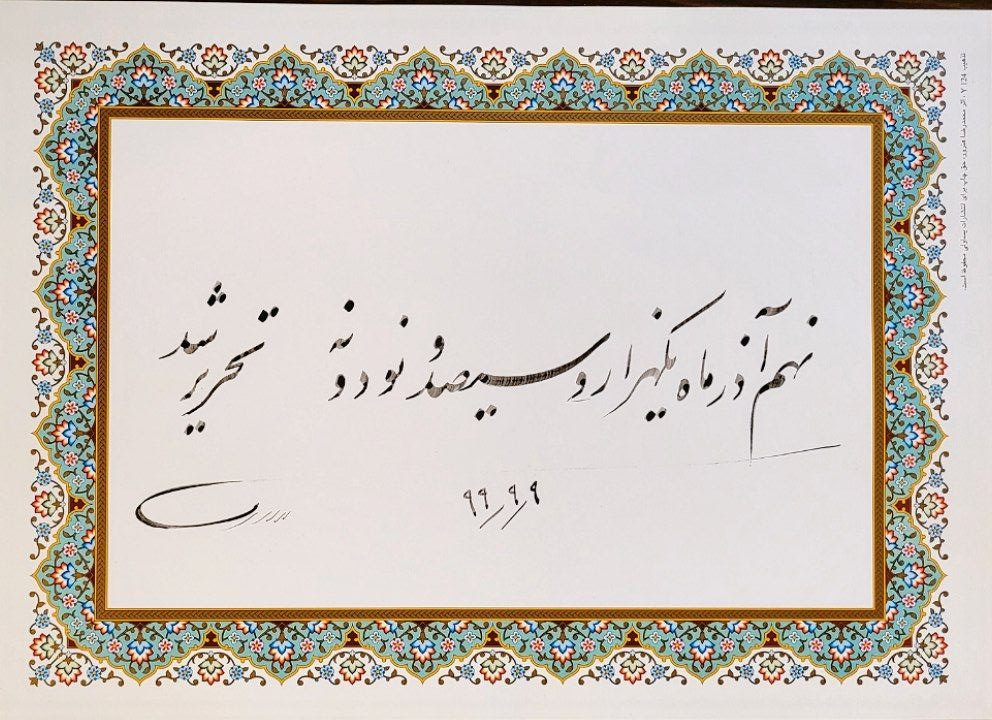 نهم آذر ماه یکهزار و سیصد و نود و نه تحریر شد
۹/۹/۹۹
تذهیب 124 Y ، اثر محمدرضا هنرور، حق چاپ برای انتشارات یساولی محفوظ است.